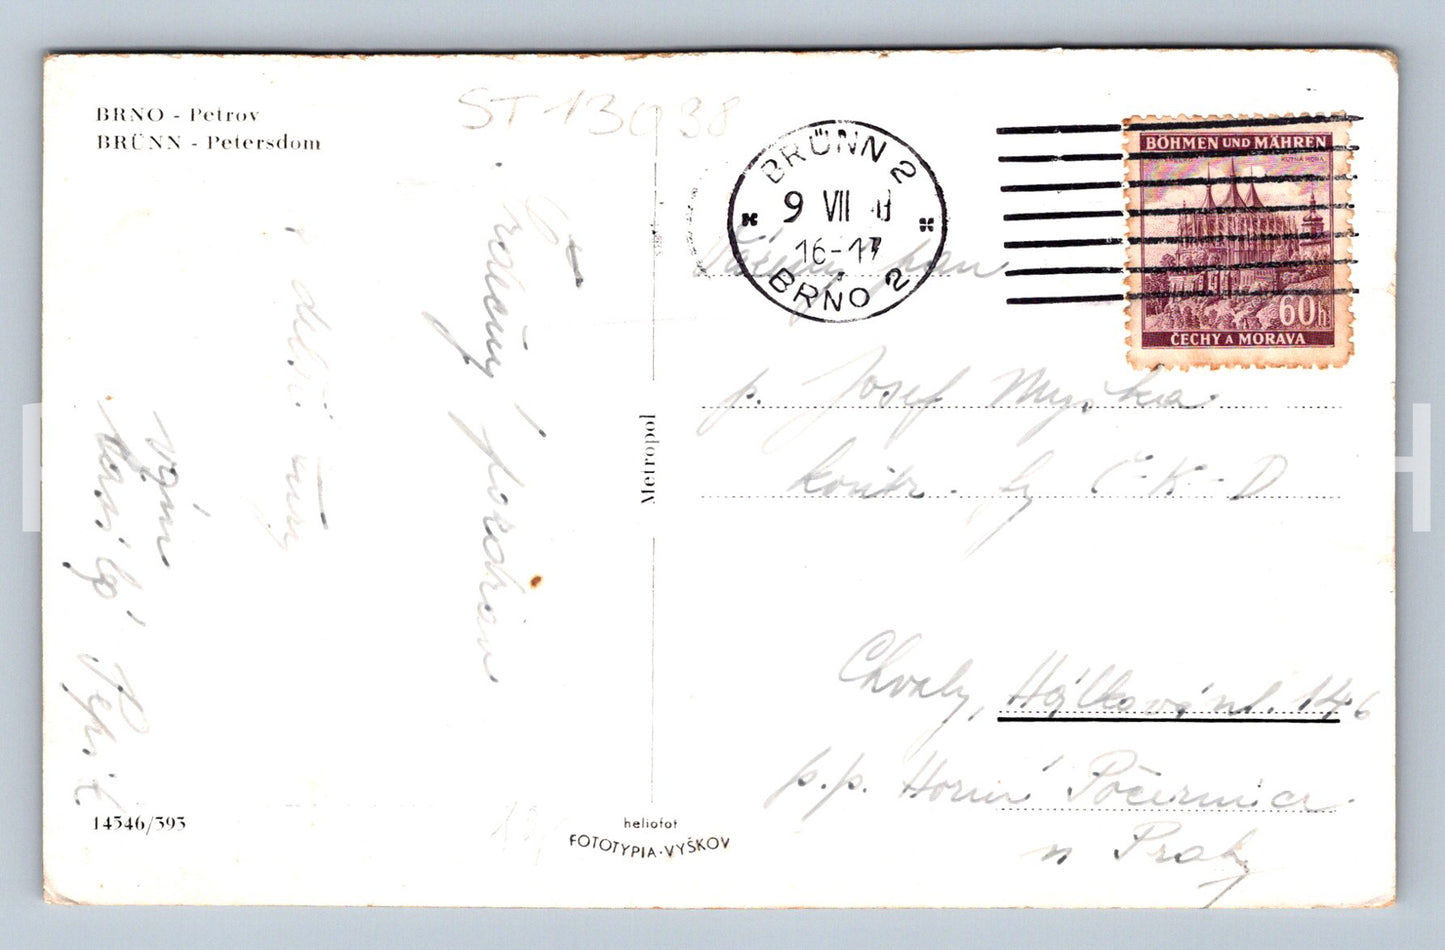 BRNO - Petrov
BRÜNN - Petersdom
ST 13038
BRÜNN 2
9 VII
16-17
BRNO 2
BÖHMEN UND MÄHREN
KUTNÁ HORA
60h
ČECHY A MORAVA
Vážený pan
p. Josef Myška
kontr. fy Č-K-D
Chvaly, Hálkova ul. 146
p.p. Horní Počernice
u Prahy
Srdečný pozdrav
Vám
Metropol
14346/393
heliofot
FOTOTYPIA-VYŠKOV